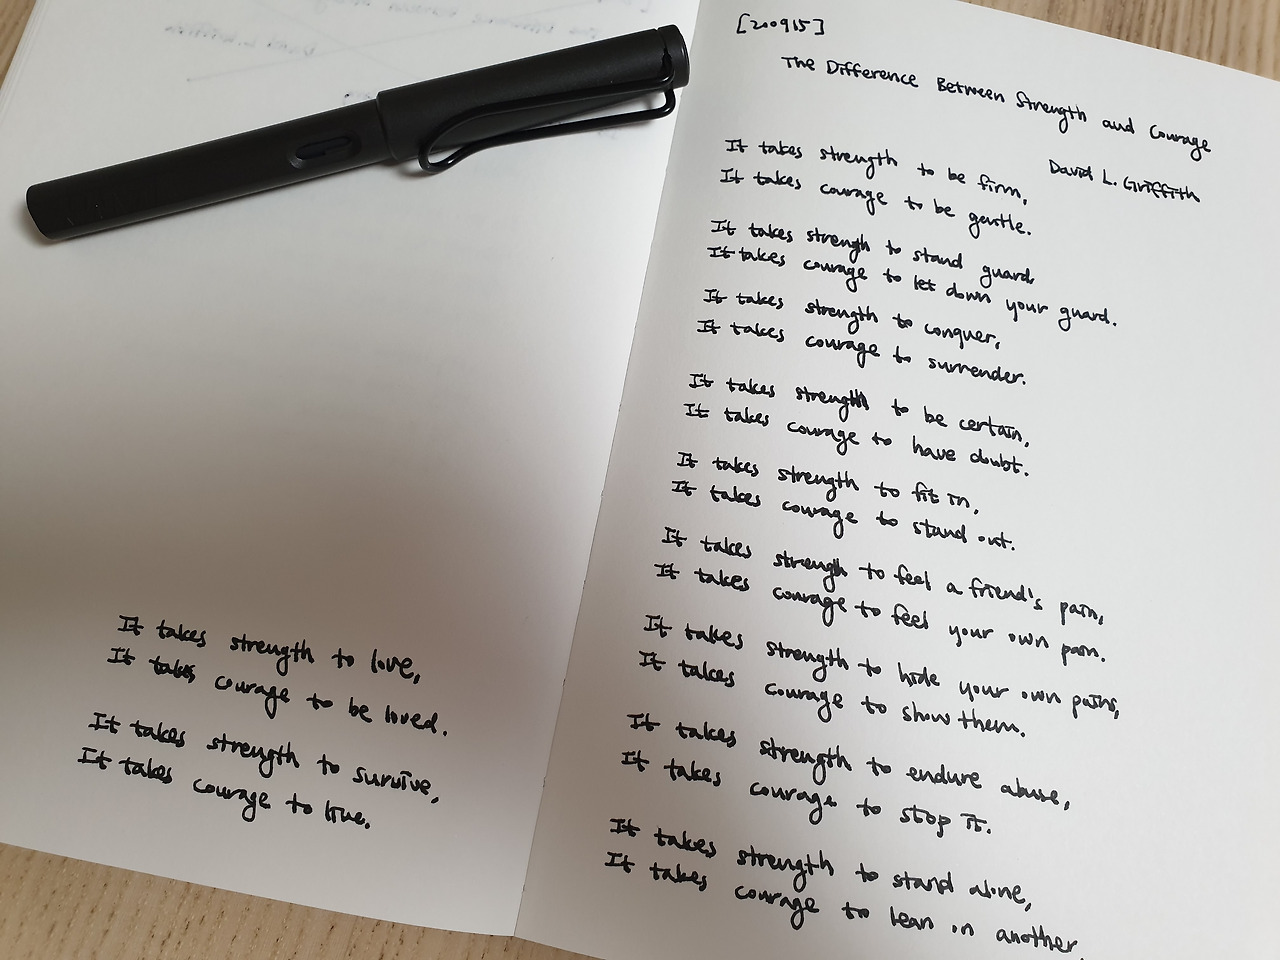 [200915]
The Difference Between Strength and Courage
David L. Griffith
It takes strength to be firm,
It takes courage to be gentle.
It takes strengh to stand guard,
It takes courage to let down your guard.
It takes strength to conquer,
It takes courage to surrender.
It takes strength to be certain,
It takes courage to have doubt.
It takes strength to fit in,
It takes courage to stand out.
It takes strength to feel a friend's pain,
It takes courage to feel your own pain.
It takes strength to hide your own pains,
It takes courage to show them.
It takes strength to endure abuse,
It takes courage to stop it.
It takes strength to stand alone,
It takes courage to lean on another.
It takes strength to love,
It takes courage to be loved.
It takes strength to survive,
It takes courage to live.